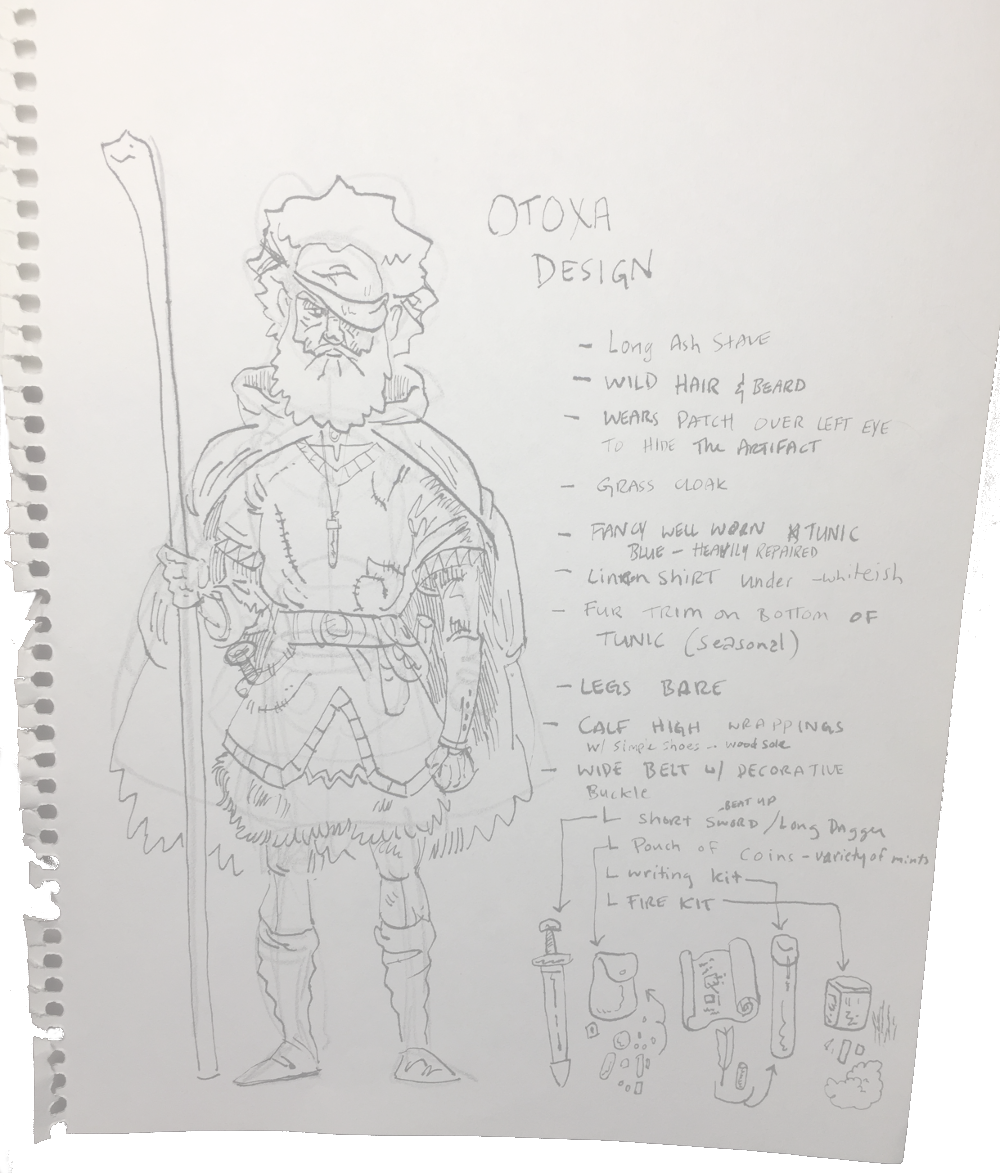 OTOXA
DESIGN
- Long Ash STAVE
- WILD HAIR & BEARD
- WEARS PATCH OVER LEFT EYE
TO HIDE The ARTIFACT
- GRASS CLOAK
- FANCY WELL WORN TUNIC
BLUE - HEAVILY REPAIRED
- Linen SHIRT under - whiteish
- FUR TRIM on BOTTOM OF
TUNIC (seasonal)
- LEGS BARE
- CALF HIGH WRAPPINGS
w/ simple shoes -- wood sole
- WIDE BELT w/ DECORATIVE
Buckle
BEAT UP
L SHORT SWORD / Long Dagger
L Pouch of coins - variety of mints
L writing kit
L FIRE KIT